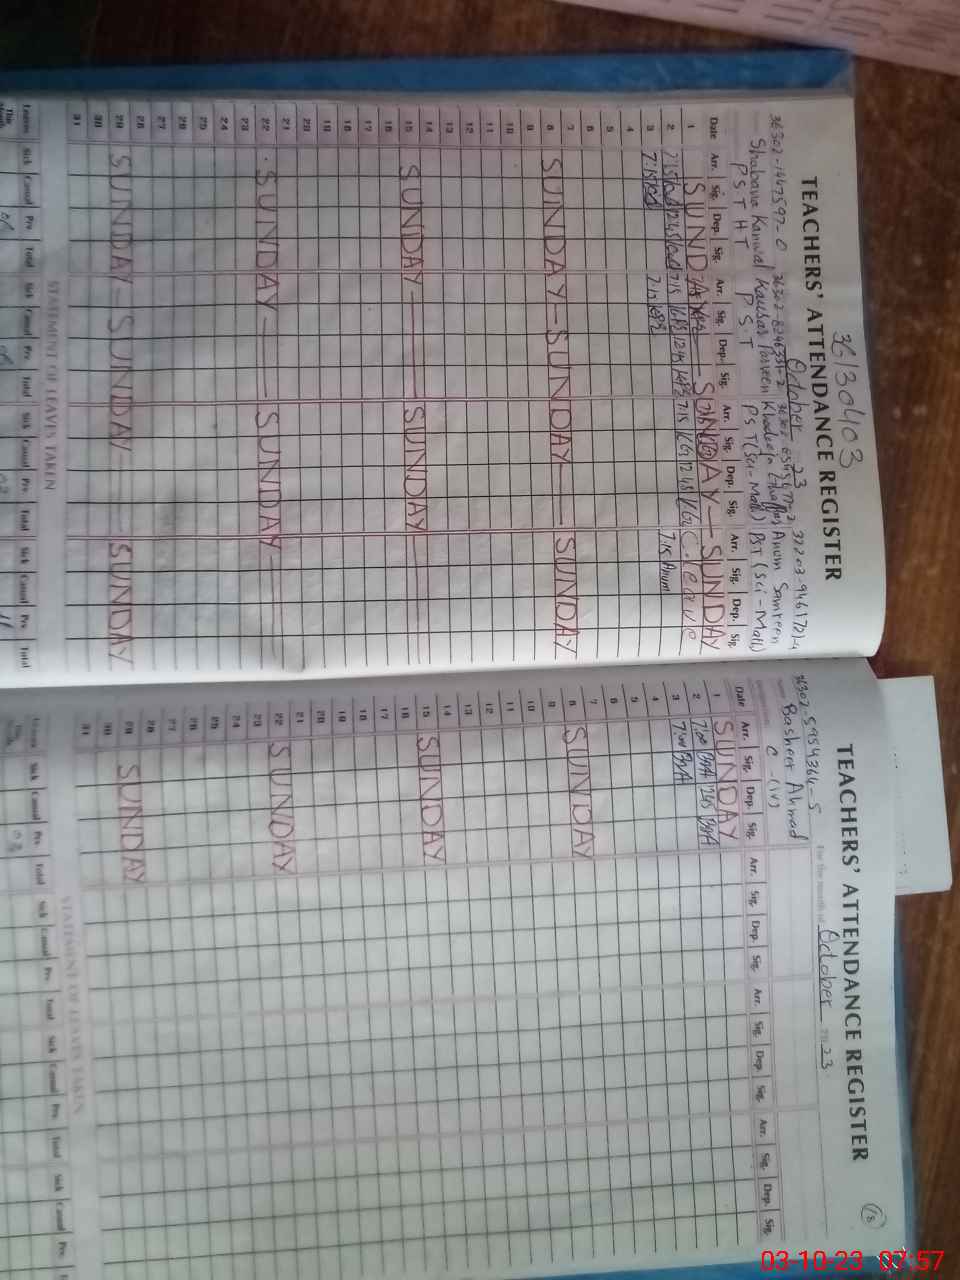 36130403
TEACHERS' ATTENDANCE REGISTER
October 23
36302-1447597-0
Shabana Kanwal Kausar Parveen Khadeeja Anum Samreen
P.S.T HT P.S.T PST(Sci-Math) PST (Sci-Math)
Date Arr. Sig. Dep. Sig. Arr. Sig. Dep. Sig. Arr. Sig. Dep. Sig. Arr. Sig. Dep. Sig.
1 SUNDAY — SUNDAY — SUNDAY
2 7:15 12:45 7:15 12:45 7:15 12:45 C.leave
3 7:15 7:15 7:15 Anum
4
5
6
7
8 SUNDAY — SUNDAY — SUNDAY
9
10
11
12
13
14
15 SUNDAY — SUNDAY —
16
17
18
19
20
21
22 SUNDAY — SUNDAY —
23
24
25
26
27
28
29 SUNDAY — SUNDAY — SUNDAY
30
31
STATEMENT OF LEAVES TAKEN
Leaves Sick Casual Prv Total Sick Casual Prv Total Sick Casual Prv Total Sick Casual Prv Total
This Month
TEACHERS' ATTENDANCE REGISTER
18
For the month of October 2023
36302-5954364-5
Basheer Ahmad
C-(iv)
Date Arr. Sig. Dep. Sig. Arr. Sig. Dep. Sig. Arr. Sig. Dep. Sig. Arr. Sig. Dep. Sig.
1 SUNDAY
2 7:00 12:45
3 7:00
4
5
6
7
8 SUNDAY
9
10
11
12
13
14
15 SUNDAY
16
17
18
19
20
21
22 SUNDAY
23
24
25
26
27
28
29 SUNDAY
30
31
STATEMENT OF LEAVES TAKEN
Sick Casual Prv. Total Sick Casual Prv. Total Sick Casual Prv. Total Sick Casual Prv.
03-10-23 07:57